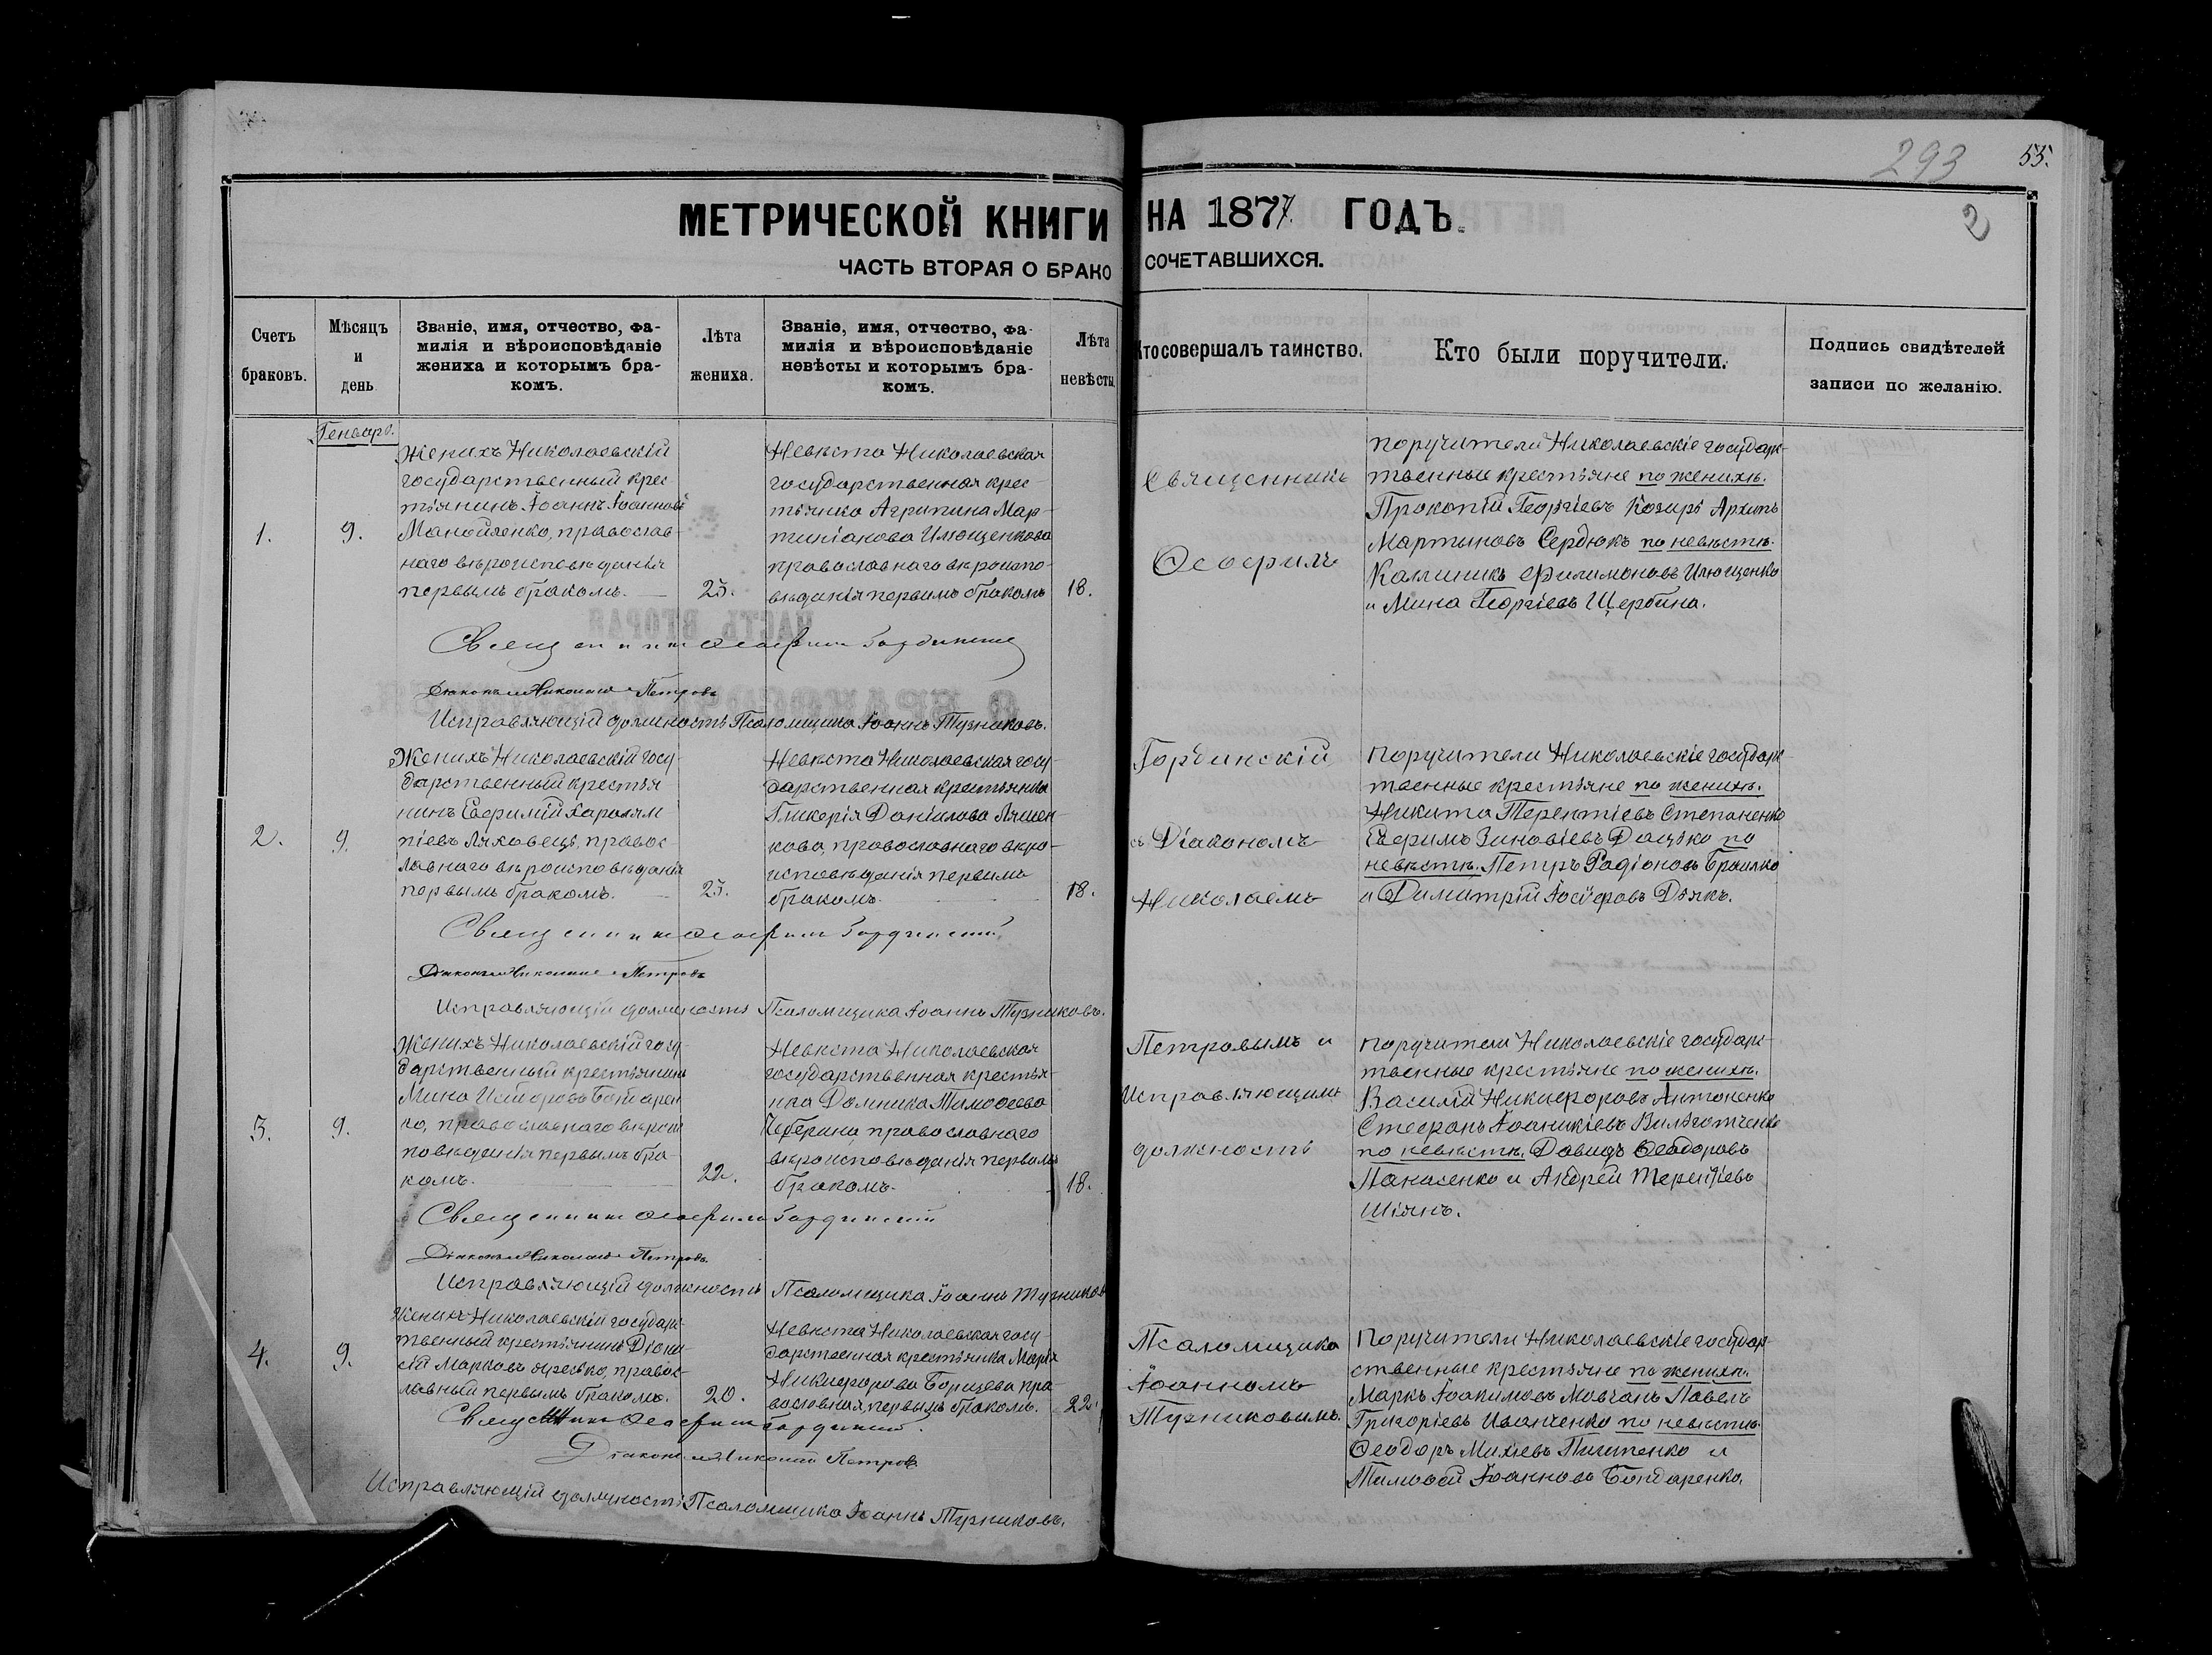 293
55.
2
МЕТРИЧЕСКОЙ КНИГИ НА 1877 ГОДЪ.
ЧАСТЬ ВТОРАЯ О БРАКОСОЧЕТАВШИХСЯ.
Счетъ браковъ.
Мѣсяцъ и день
Званіе, имя, отчество, фа-
милія и вѣроисповѣданіе
жениха и которымъ бра-
комъ.
Лѣта жениха.
Званіе, имя, отчество, фа-
милія и вѣроисповѣданіе
невѣсты и которымъ бра-
комъ.
Лѣта невѣсты
Кто совершалъ таинство.
Кто были поручители.
Подпись свидѣтелей
записи по желанію.
Генварь.
1.
9.
Женихъ Николаевскій
государственный крес-
тьянинъ Іоаннъ Іоанновъ
Манойленко, православ-
наго вѣроисповѣданія
первымъ бракомъ.
25.
Невѣста Николаевская
государственная крес-
тьянка Агрипина Мар-
тиніанова Илющенкова
православнаго вѣроиспо-
вѣданія первымъ бракомъ
18.
Священникъ
Ѳеофилъ
Поручители Николаевскіе государс-
твенные крестьяне по женихѣ.
Прокопій Георгіевъ Козирь Архипъ
Мартыновъ Сердюкъ по невѣстѣ.
Каллиникъ Филимоновъ Илющенко
и Мина Георгіевъ Щербина.
Священникъ Ѳеофилъ Гординскій
Діаконъ Николай Петровъ
Исправляющій должность Псаломщика Іоаннъ Турчиковъ.
2.
9.
Женихъ Николаевскій госу-
дарственный крестья
нинъ Евфимій Харалам
піевъ Ляховецъ, правос-
лавнаго вѣроисповѣданія
первымъ бракомъ.
25.
Невѣста Николаевская госу-
дарственная крестьянка
Гликерія Даніилова Ляшен-
кова, православнаго вѣро-
исповѣданія первымъ
бракомъ.
18.
Гординскій
съ Діакономъ
Николаемъ
Поручители Николаевскіе государс-
твенные крестьяне по женихѣ.
Никита Терентіевъ Степаненко
Евфимъ Зиновіевъ Доцько по
невѣстѣ. Петръ Радіоновъ Браилко
и Димитрій Іосифовъ Дьякъ.
Священникъ Ѳеофилъ Гординскій
Діаконъ Николай Петровъ
Исправляющій должность Псаломщика Іоаннъ Турчиковъ.
3.
9.
Женихъ Николаевскій госу-
дарственный крестьянинъ
Мина Исидоровъ Бондарен
ко, православнаго вѣроис
повѣданія первымъ бра-
комъ.
22.
Невѣста Николаевская
государственная крестья-
нка Домника Тимоѳеева
Чеберина православнаго
вѣроисповѣданія первымъ
бракомъ.
18.
Петровымъ и
Исправляющимъ
должность
Поручители Николаевскіе государс-
твенные крестьяне по женихѣ.
Василій Никифоровъ Антоненко
Стефанъ Іоаникіевъ
по невѣстѣ. Давидъ Ѳеодоровъ
Панасенко и Андрей Терентіевъ
Шіянъ.
Священникъ Ѳеофилъ Гординскій
Діаконъ Николай Петровъ.
Исправляющій должность Псаломщика Іоаннъ Турчиковъ
4.
9.
Женихъ Николаевскій государс-
твенный крестьянинъ Діони-
сій Марковъ правос-
лавный первымъ бракомъ.
20.
Невѣста Николаевская госу-
дарственная крестьянка Марія
Никифорова Борщева пра-
вославная, первымъ бракомъ.
22.
Псаломщика
Іоанномъ
Турчиковымъ.
Поручители Николаевскіе государ-
ственные крестьяне по женихѣ.
Маркъ Іоакимовъ Мовчанъ Павелъ
Григоріевъ Иванченко по невѣстѣ.
Ѳеодоръ Михѣевъ и
Тимоѳей Іоанновъ Бондаренко.
Священникъ Ѳеофилъ Гординскій.
Діаконъ Николай Петровъ
Исправляющій должность Псаломщика Іоаннъ Турчиковъ.